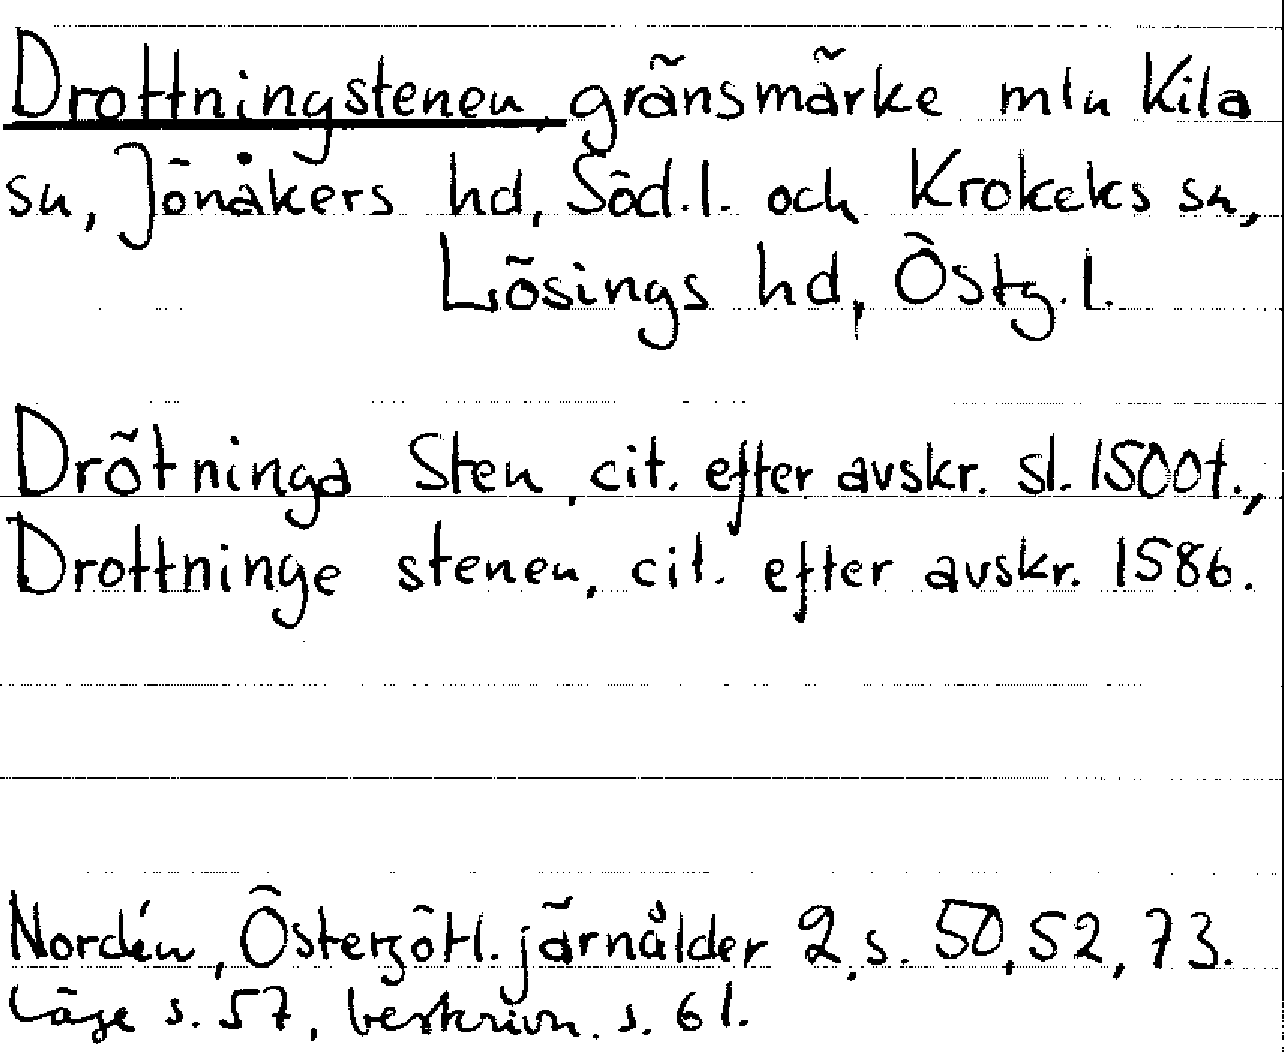 Drottningstenen, gränsmärke mln Kila
sn, Jönåkers hd, Söd.l. och Krokeks sn,
Lösings hd, Östg.l.
Drötninga Sten, cit. efter avskr. sl. 1500t.,
Drottninge stenen, cit. efter avskr. 1586.
Nordén, Östergötl. järnålder 2, s. 50, 52, 73.
Läge s. 57, beskrivn. s. 61.